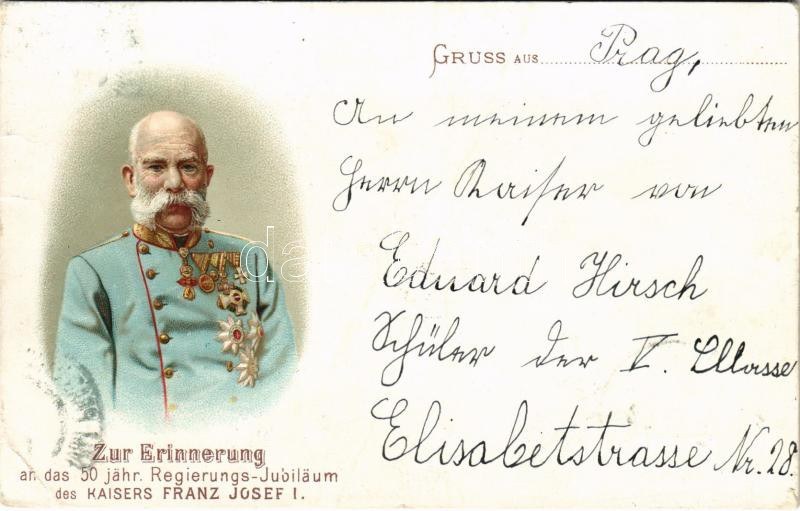 GRUSS AUS Prag,
An meinem geliebten
Herrn Kaiser von
Eduard Hirsch
Schüler der V. Classe
Elisabetstrasse Nr. 28.
Zur Erinnerung
an das 50 jähr. Regierungs-Jubiläum
des KAISERS FRANZ JOSEF I.